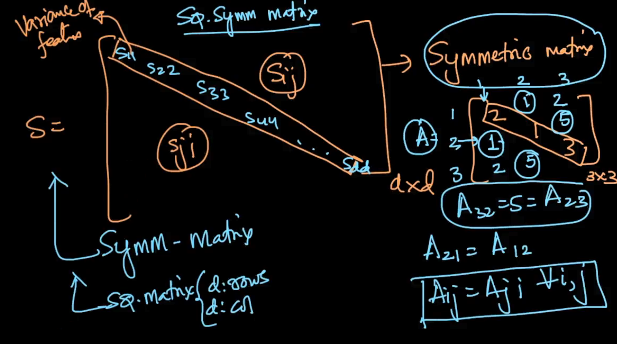 Variance of
feature
Sq. Symm matrix
S =
S11
S22
S33
S44
...
Sdd
Sij
Sji
d×d
Symm-Matrix
SQ. Matrix { d: rows
d: col
Symmetric matrix
1 2 3
A =
1 2 1 2
2 1 1 5
3 2 5 3
3×3
A32 = 5 = A23
A21 = A12
Aij = Aji ∀i,j